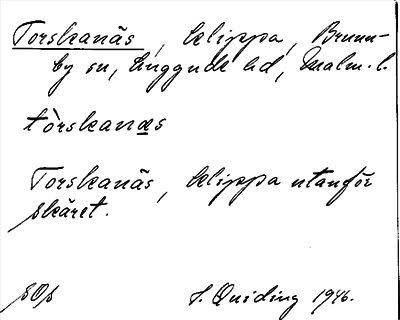 Torskanäs, klippa, Brunn-
by sn, Luggude hd, Malm. l.
tòrskanas
Torskanäs, klippa utanför
skäret.
S. Quiding 1946.